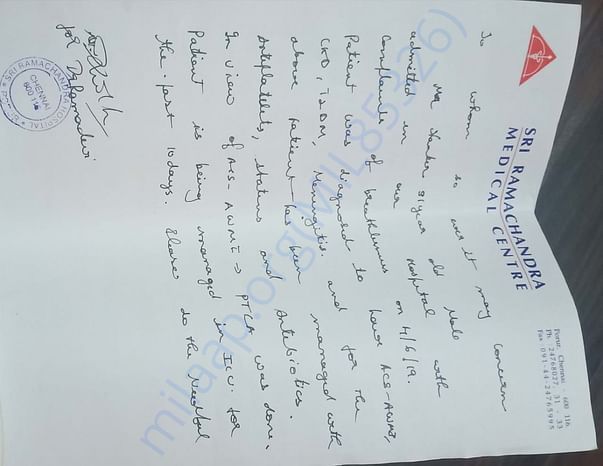 SRI RAMACHANDRA
MEDICAL CENTRE
Porur, Chennai - 600 116.
Ph: 24768027, 31 - 33
Fax: 091-44-24765995
To whom so ever it may concern
Mr Shaker 81year old Male with
admitted in our Hospital on 4/6/19.
Complaints of breathlessness
Patient was diagnosed to have ACS-AWMI,
CKD, T2DM, Meningitis. and for the
above patient has been managed with
Antiplatelets, statins and Antibiotics.
In view of ACS-AWMI → PTCA was done.
Patient is being managed in ICU. for
the past 10days. do the needful
for
SRI RAMACHANDRA HOSPITAL
CHENNAI
600 116
milaap.org(MIL85326)